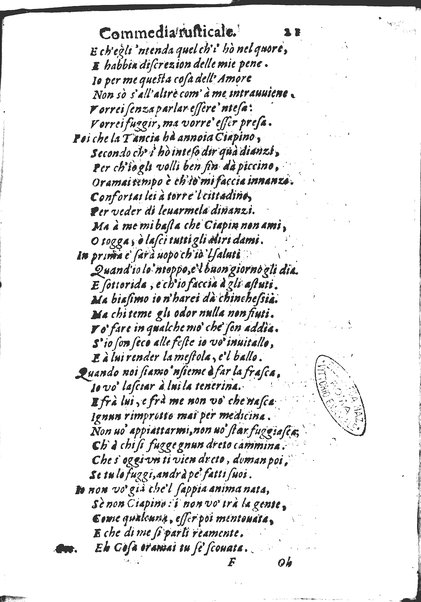 Commedia rusticale. 21
E ch'egli 'ntenda quel ch'i hò nel quore,
E habbia discrezion delle mie pene.
Io per me questa cosa dell'Amore
Non sò s'all'altre com' à me intrauuiene.
Vorrei senza parlar essere 'ntesa:
Vorrei fuggir, ma vorre' esser presa.
Poi che la Tancia hà annoia Ciapino,
Secondo ch'i hò inteso dir quà dianzi,
Per ch'io gli volli ben fin dà piccino,
Oramai tempo è ch'io mi faccia innanzi.
Confortai lei à torre'l cittadino,
Per veder di leuarmela dinanzi.
Ma à me mi basta che Ciapin non ami,
O togga, ò lasci tutti gli altri dami.
In prima e' sarà uopo ch'io'l saluti
Quand'io lo 'ntoppo, e'l buon giorno gli dia.
E sottorida, e ch'io faccia à gli astuti.
Ma biasimo io n'harei dà chinchessia.
Ma chi teme gli odor nulla non fiuti.
Vo' fare in qualche mo' che' sen addia.
S'io son seco alle feste io vo' inuitallo,
E à lui render la mestola, e'l ballo.
Quando noi siamo 'nsieme à far la frasca,
Io vo' lasciar à lui la tenerina.
E frà lui, e frà me non vo' che nasca
Ignun rimprotto mai per medicina.
Non uo' appiattarmi, non uo' star fuggiasca,
Ch'à chi si fugge gnun dreto cammina.
Che s'oggi un ti vien dreto, doman poi,
Se tu lo fuggi, andrà pe' fatti suoi.
Io non vo' già che'l sappia anima nata,
Sè non Ciapino: i non vo' trà la gente,
Come qualcuna, esser poi mentouata,
E che di me si parli reamente.
Eh Cosa oramai tu se' scouata.
F Oh